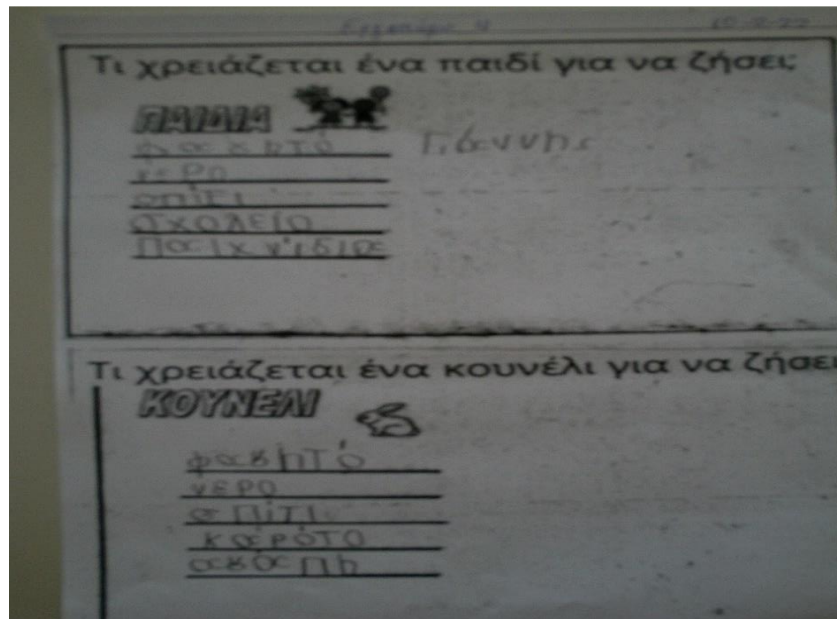 Τι χρειάζεται ένα παιδί για να ζήσει;
ΠΑΙΔΙΑ
φαγητό
Γιάννης
νερο
σπίτι
σχολείο
Παιχνίδια
Τι χρειάζεται ένα κουνέλι για να ζήσει
ΚΟΥΝΕΛΙ
φαγητό
νερο
σπίτι
καρότο
αγάπη